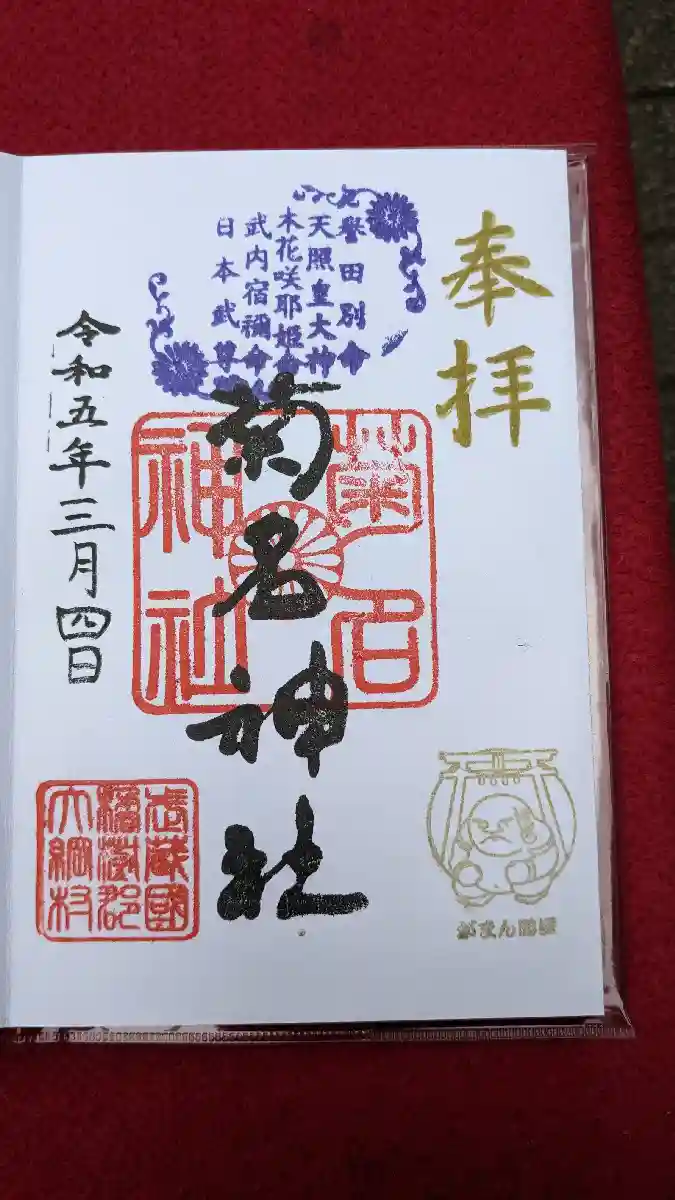 奉拝
譽田別命
天照皇大神
木花咲耶姫命
武内宿禰命
日本武尊
菊名神社
菊名
神社
令和五年三月四日
武蔵國
橘樹郡
大綱村
がまん様